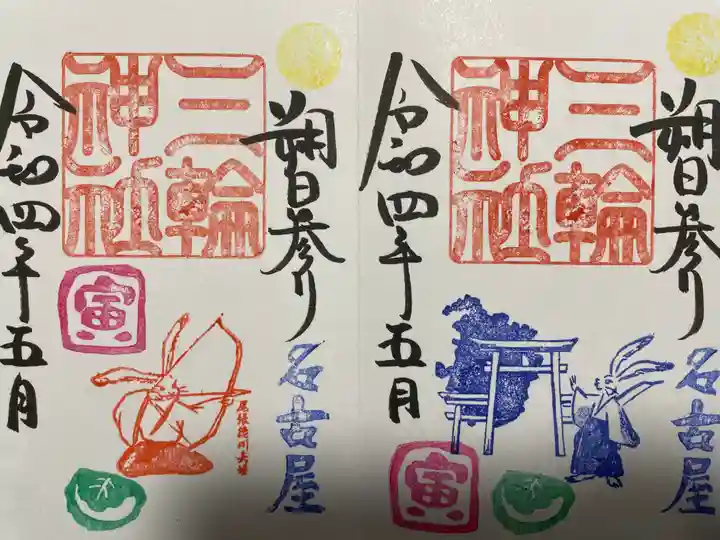 朔日参り
三輪
神社
令和四年五月
名古屋
寅
朔日参り
三輪
神社
令和四年五月
寅
名古屋